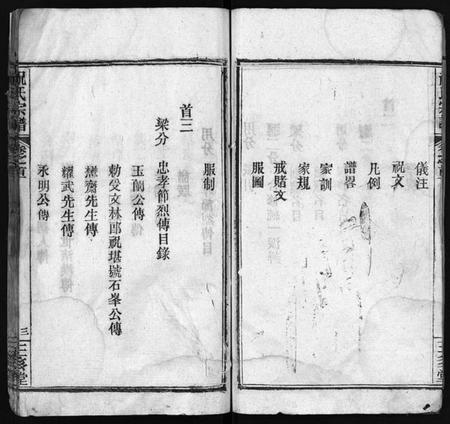 儀注
祝文
凡例
譜畧
家訓
家規
戒賭文
服圖
服制
首三
梁分　忠孝節烈傳目錄
玉㒜公傳
勅受文林郎祝堪號石峯公傳
懋齋先生傳
耀武先生傳
永明公傳
祝氏宗譜
卷之首
三
三多堂